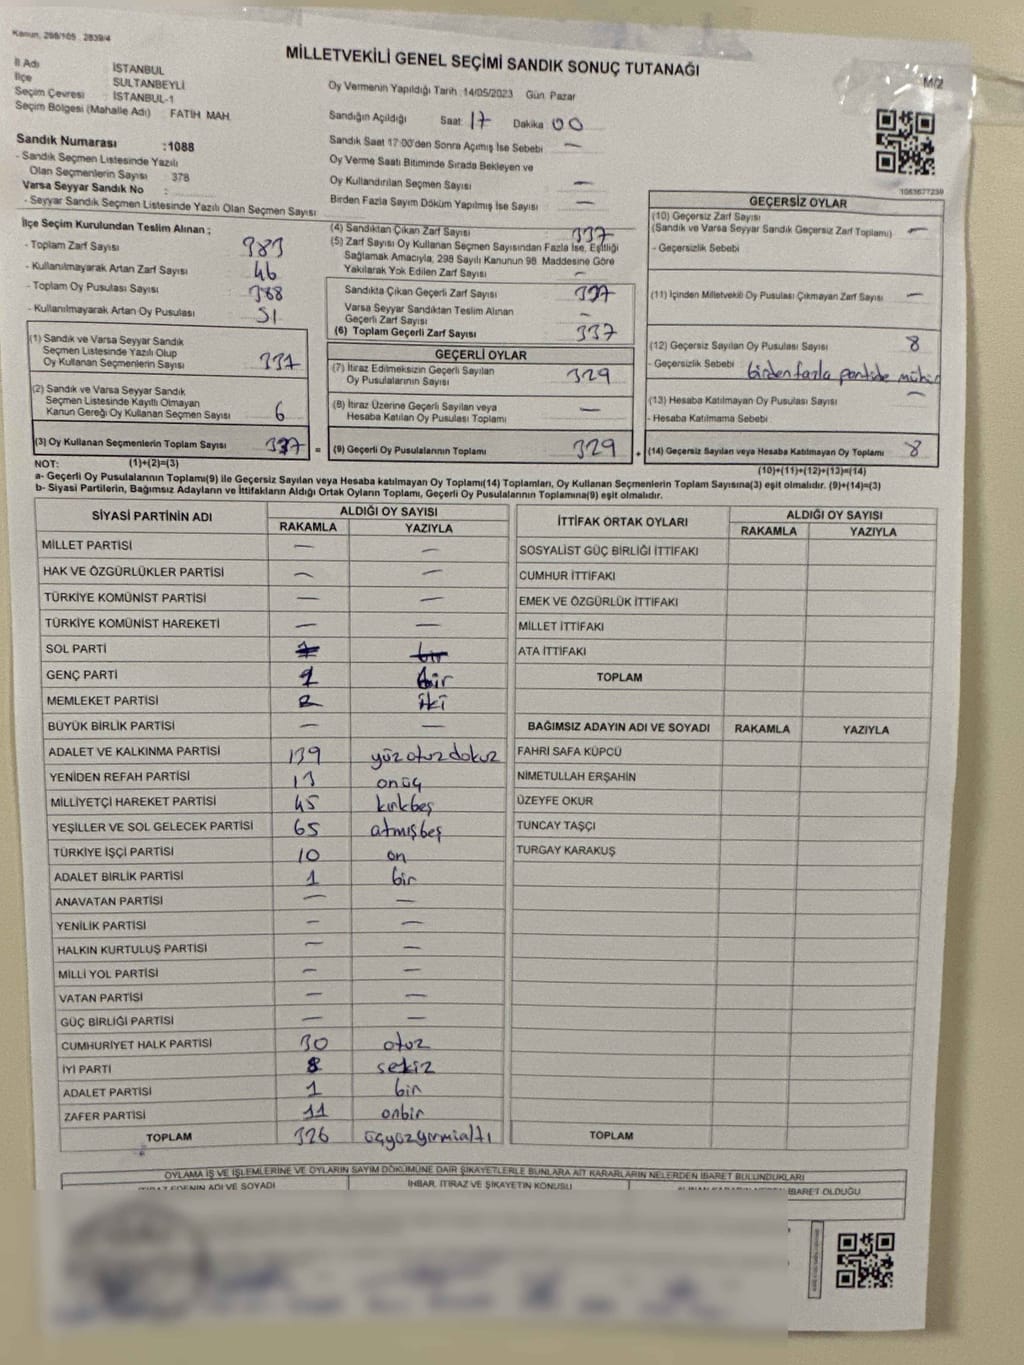 Kanun, 298/105 2839/4
MİLLETVEKİLİ GENEL SEÇİMİ SANDIK SONUÇ TUTANAĞI
M/2
İl Adı İSTANBUL
İlçe SULTANBEYLİ
Seçim Çevresi İSTANBUL-1
Seçim Bölgesi (Mahalle Adı) FATİH MAH.
Sandık Numarası :1088
- Sandık Seçmen Listesinde Yazılı
Olan Seçmenlerin Sayısı 378
Varsa Seyyar Sandık No :
- Seyyar Sandık Seçmen Listesinde Yazılı Olan Seçmen Sayısı
Oy Vermenin Yapıldığı Tarih 14/05/2023 Gün Pazar
Sandığın Açıldığı Saat 17 Dakika 00
Sandık Saat 17:00'den Sonra Açılmış İse Sebebi —
Oy Verme Saati Bitiminde Sırada Bekleyen ve
Oy Kullandırılan Seçmen Sayısı —
Birden Fazla Sayım Döküm Yapılmış İse Sayısı —
İlçe Seçim Kurulundan Teslim Alınan ;
- Toplam Zarf Sayısı 383
- Kullanılmayarak Artan Zarf Sayısı 46
- Toplam Oy Pusulası Sayısı 388
- Kullanılmayarak Artan Oy Pusulası 51
(1) Sandık ve Varsa Seyyar Sandık
Seçmen Listesinde Yazılı Olup
Oy Kullanan Seçmenlerin Sayısı 331
(2) Sandık ve Varsa Seyyar Sandık
Seçmen Listesinde Kayıtlı Olmayan
Kanun Gereği Oy Kullanan Seçmen Sayısı 6
(3) Oy Kullanan Seçmenlerin Toplam Sayısı 337 =
(4) Sandıktan Çıkan Zarf Sayısı 337
(5) Zarf Sayısı Oy Kullanan Seçmen Sayısından Fazla İse, Eşitliği
Sağlamak Amacıyla, 298 Sayılı Kanunun 98. Maddesine Göre
Yakılarak Yok Edilen Zarf Sayısı —
Sandıkta Çıkan Geçerli Zarf Sayısı 337
Varsa Seyyar Sandıktan Teslim Alınan
Geçerli Zarf Sayısı —
(6) Toplam Geçerli Zarf Sayısı 337
GEÇERLİ OYLAR
(7) İtiraz Edilmeksizin Geçerli Sayılan
Oy Pusulalarının Sayısı 329
(8) İtiraz Üzerine Geçerli Sayılan veya
Hesaba Katılan Oy Pusulası Toplamı —
(9) Geçerli Oy Pusulalarının Toplamı 329 +
1083677239
GEÇERSİZ OYLAR
(10) Geçersiz Zarf Sayısı
(Sandık ve Varsa Seyyar Sandık Geçersiz Zarf Toplamı) —
- Geçersizlik Sebebi
(11) İçinden Milletvekili Oy Pusulası Çıkmayan Zarf Sayısı —
(12) Geçersiz Sayılan Oy Pusulası Sayısı 8
- Geçersizlik Sebebi birden fazla partide mühür
(13) Hesaba Katılmayan Oy Pusulası Sayısı —
- Hesaba Katılmama Sebebi
(14) Geçersiz Sayılan veya Hesaba Katılmayan Oy Toplamı 8
NOT: (1)+(2)=(3) (10)+(11)+(12)+(13)=(14)
a- Geçerli Oy Pusulalarının Toplamı(9) ile Geçersiz Sayılan veya Hesaba katılmayan Oy Toplamı(14) Toplamları, Oy Kullanan Seçmenlerin Toplam Sayısına(3) eşit olmalıdır. (9)+(14)=(3)
b- Siyasi Partilerin, Bağımsız Adayların ve İttifakların Aldığı Ortak Oyların Toplamı, Geçerli Oy Pusulalarının Toplamına(9) eşit olmalıdır.
SİYASİ PARTİNİN ADI ALDIĞI OY SAYISI
RAKAMLA YAZIYLA
MİLLET PARTİSİ — —
HAK VE ÖZGÜRLÜKLER PARTİSİ — —
TÜRKİYE KOMÜNİST PARTİSİ — —
TÜRKİYE KOMÜNİST HAREKETİ — —
SOL PARTİ 1 bir
GENÇ PARTİ 1 bir
MEMLEKET PARTİSİ 2 iki
BÜYÜK BİRLİK PARTİSİ — —
ADALET VE KALKINMA PARTİSİ 139 yüzotuzdokuz
YENİDEN REFAH PARTİSİ 13 onüç
MİLLİYETÇİ HAREKET PARTİSİ 45 kırkbeş
YEŞİLLER VE SOL GELECEK PARTİSİ 65 atmışbeş
TÜRKİYE İŞÇİ PARTİSİ 10 on
ADALET BİRLİK PARTİSİ 1 bir
ANAVATAN PARTİSİ — —
YENİLİK PARTİSİ — —
HALKIN KURTULUŞ PARTİSİ — —
MİLLİ YOL PARTİSİ — —
VATAN PARTİSİ — —
GÜÇ BİRLİĞİ PARTİSİ — —
CUMHURİYET HALK PARTİSİ 30 otuz
İYİ PARTİ 8 sekiz
ADALET PARTİSİ 1 bir
ZAFER PARTİSİ 11 onbir
TOPLAM 326 üçyüzyirmialtı
İTTİFAK ORTAK OYLARI ALDIĞI OY SAYISI
RAKAMLA YAZIYLA
SOSYALİST GÜÇ BİRLİĞİ İTTİFAKI
CUMHUR İTTİFAKI
EMEK VE ÖZGÜRLÜK İTTİFAKI
MİLLET İTTİFAKI
ATA İTTİFAKI
TOPLAM
BAĞIMSIZ ADAYIN ADI VE SOYADI RAKAMLA YAZIYLA
FAHRİ SAFA KÜPCÜ
NİMETULLAH ERŞAHİN
ÜZEYFE OKUR
TUNCAY TAŞÇI
TURGAY KARAKUŞ
TOPLAM
OYLAMA İŞ VE İŞLEMLERİNE VE OYLARIN SAYIM DÖKÜMÜNE DAİR ŞİKAYETLERLE BUNLARA AİT KARARLARIN NELERDEN İBARET BULUNDUKLARI
ADI VE SOYADI İHBAR, İTİRAZ VE ŞİKAYETİN KONUSU İBARET OLDUĞU